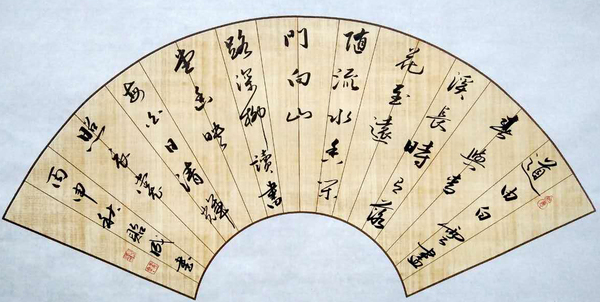 道由白雲盡
春與青
溪長時有落
花至遠
随流水香閑
門向山
路深柳讀書
堂幽映
每白日清輝
照衣裳
丙申秋